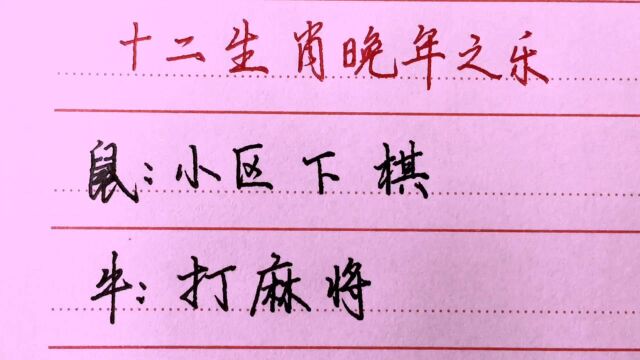 十二生肖晚年之乐
鼠:小区下棋
牛:打麻将